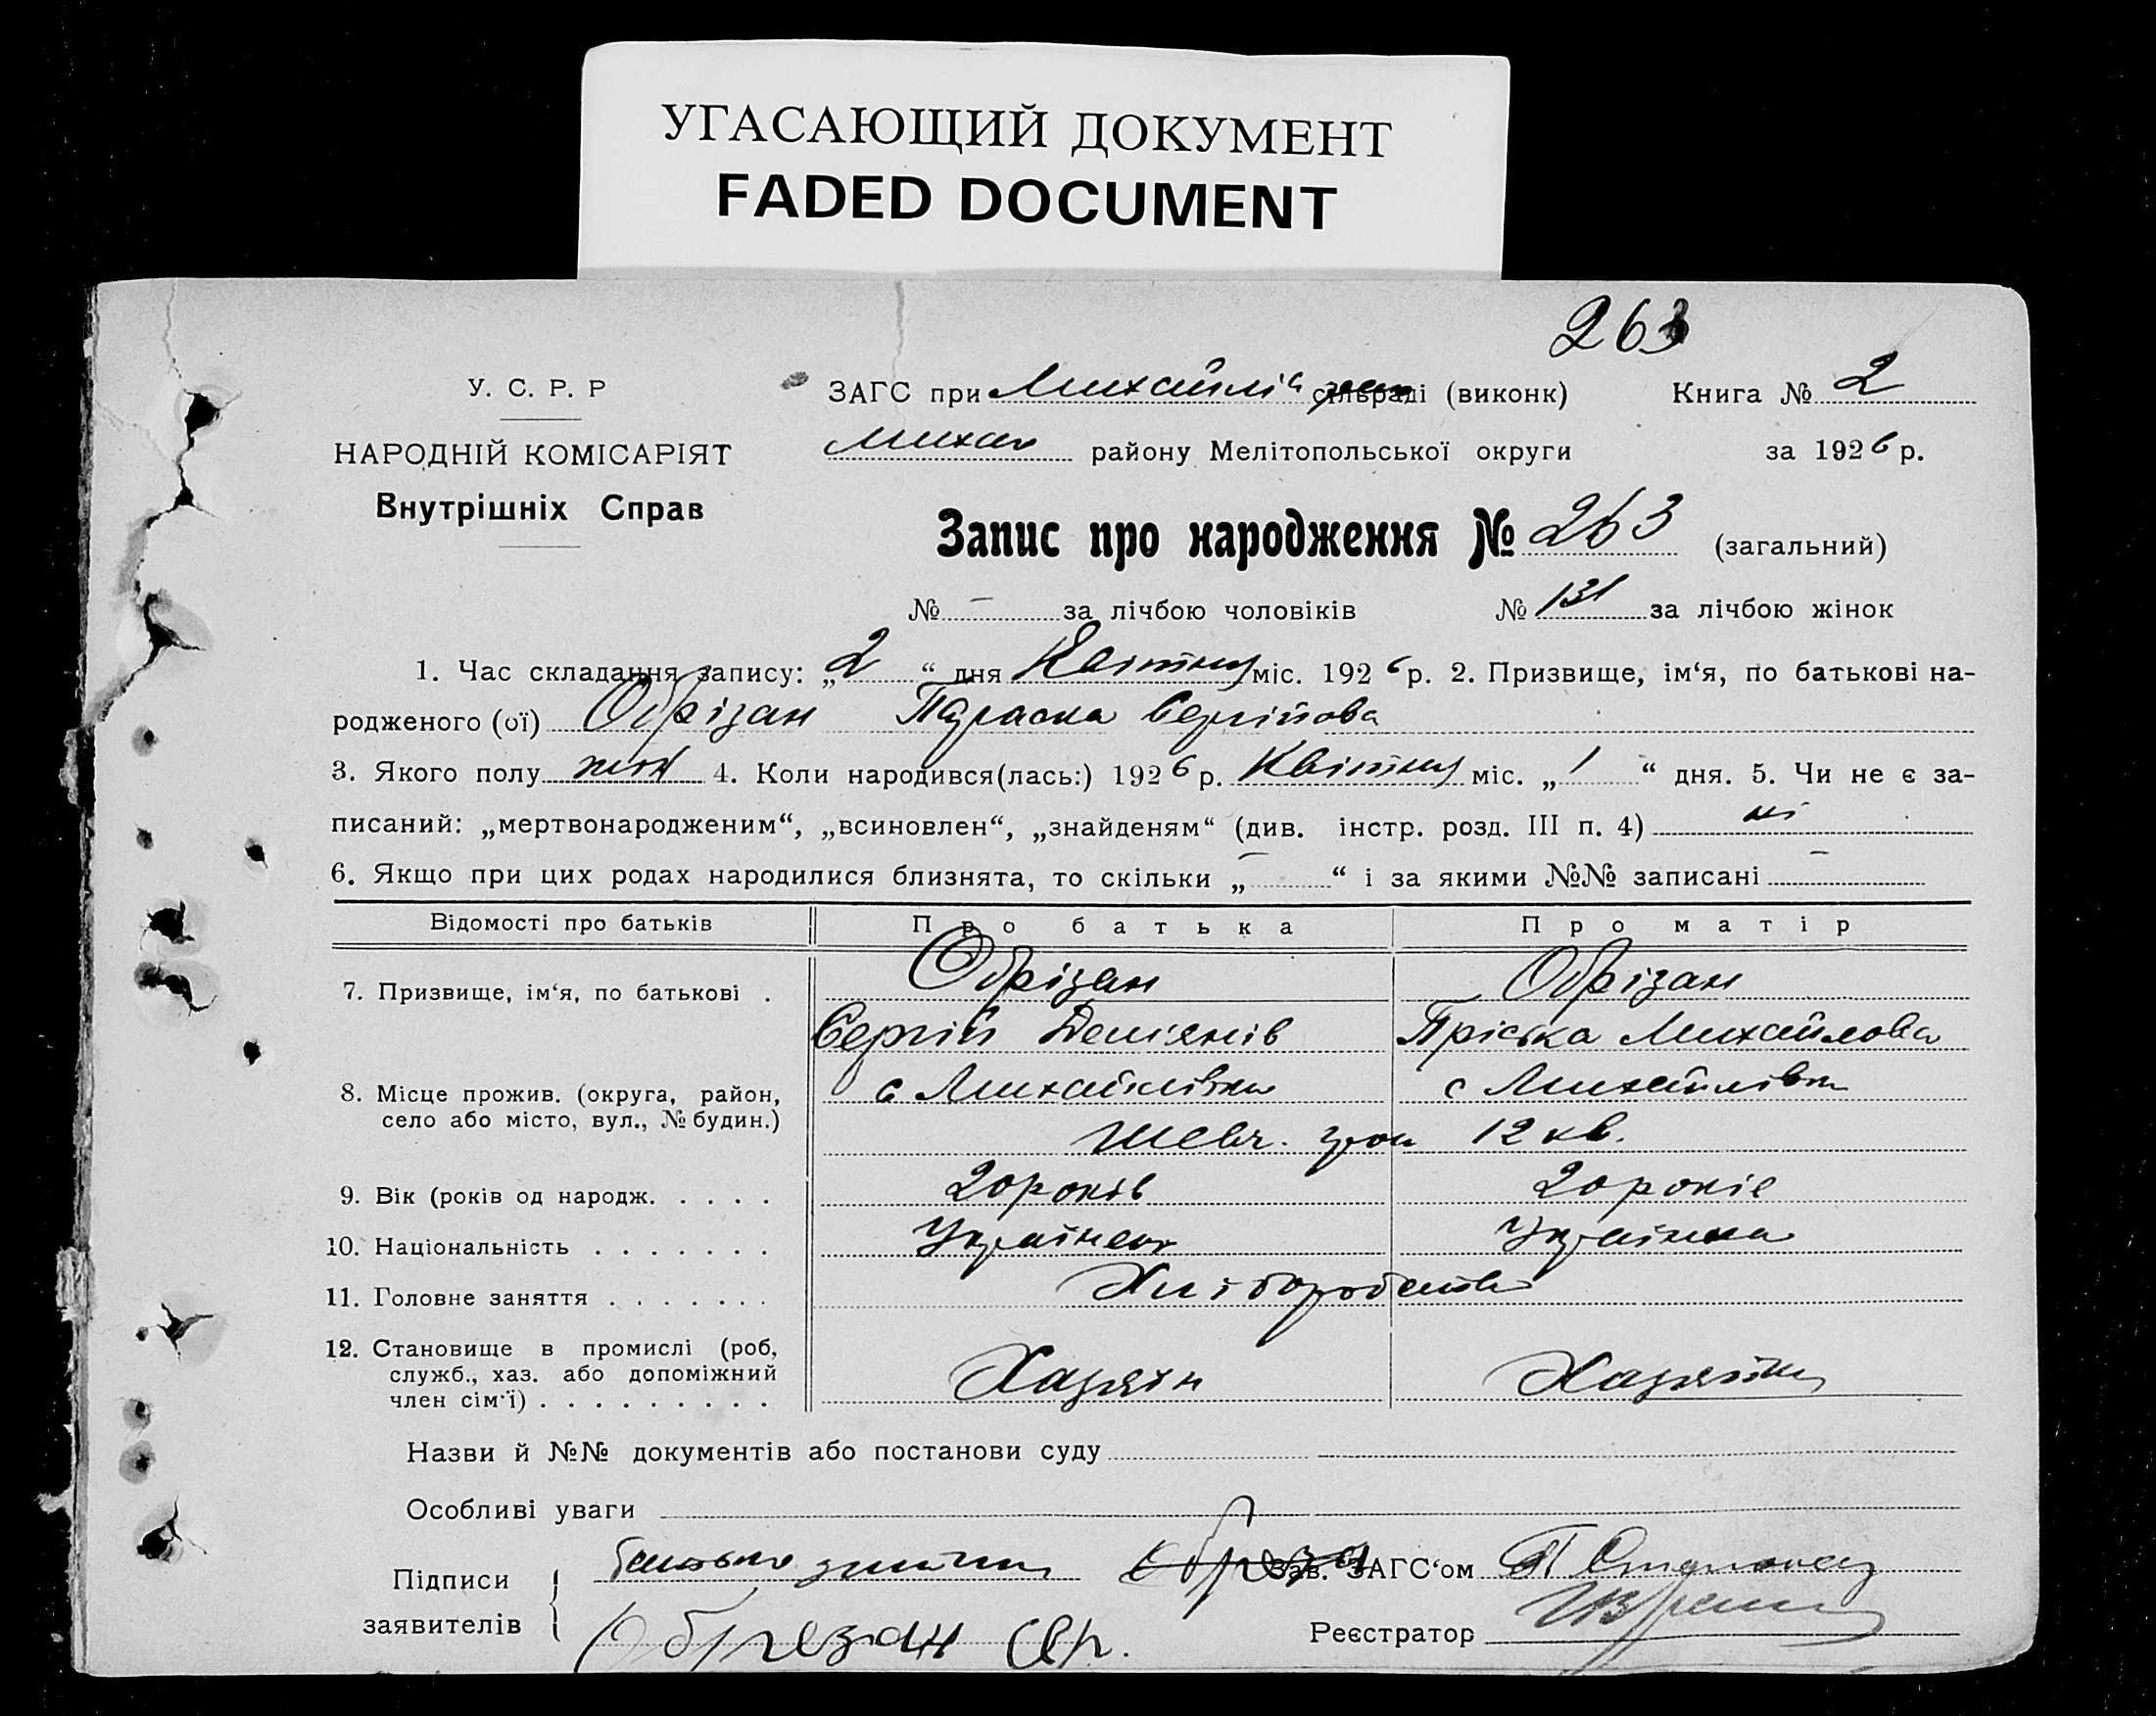 УГАСАЮЩИЙ ДОКУМЕНТ
FADED DOCUMENT
263
У. С. Р. Р
ЗАГС при Михайлів сільраді (виконк) Книга № 2
НАРОДНІЙ КОМІСАРІЯТ
Михай району Мелітопольської округи за 1926 р.
Внутрішніх Справ
Запис про народження № 263 (загальний)
№ — за лічбою чоловіків № 131 за лічбою жінок
1. Час складання запису: „2“ дня Квітня міс. 1926 р. 2. Призвище, ім‘я, по батькові на-
родженого (ої) Обрізан Параска Сергійова
3. Якого полу жін 4. Коли народився(лась:) 1926 р. Квітня міс. „1“ дня. 5. Чи не є за-
писаний: „мертвонародженим“, „всиновлен“, „знайденям“ (див. інстр. розд. III п. 4) ні
6. Якщо при цих родах народилися близнята, то скільки „—“ і за якими №№ записані —
Відомості про батьків Про батька Про матір
7. Призвище, ім‘я, по батькові . Обрізан Обрізан
Сергій Демянів Пріська Михайлова
8. Місце прожив. (округа, район, с Михайлівка с Михайлівка
село або місто, вул., № будин.)
Шевч. 12 кв.
9. Вік (років од народж. . . . . 20 років 20 років
10. Національність . . . . . . . Українец Українка
11. Головне заняття . . . . . . . Хліборобство
12. Становище в промислі (роб,
служб., хаз. або допоміжний Хазяін Хазяйка
член сім‘ї) . . . . . . . . .
Назви й №№ документів або постанови суду
Особливі уваги
Підписи батько Зав. ЗАГС‘ом
заявителів Обрезан Сер. Реєстратор